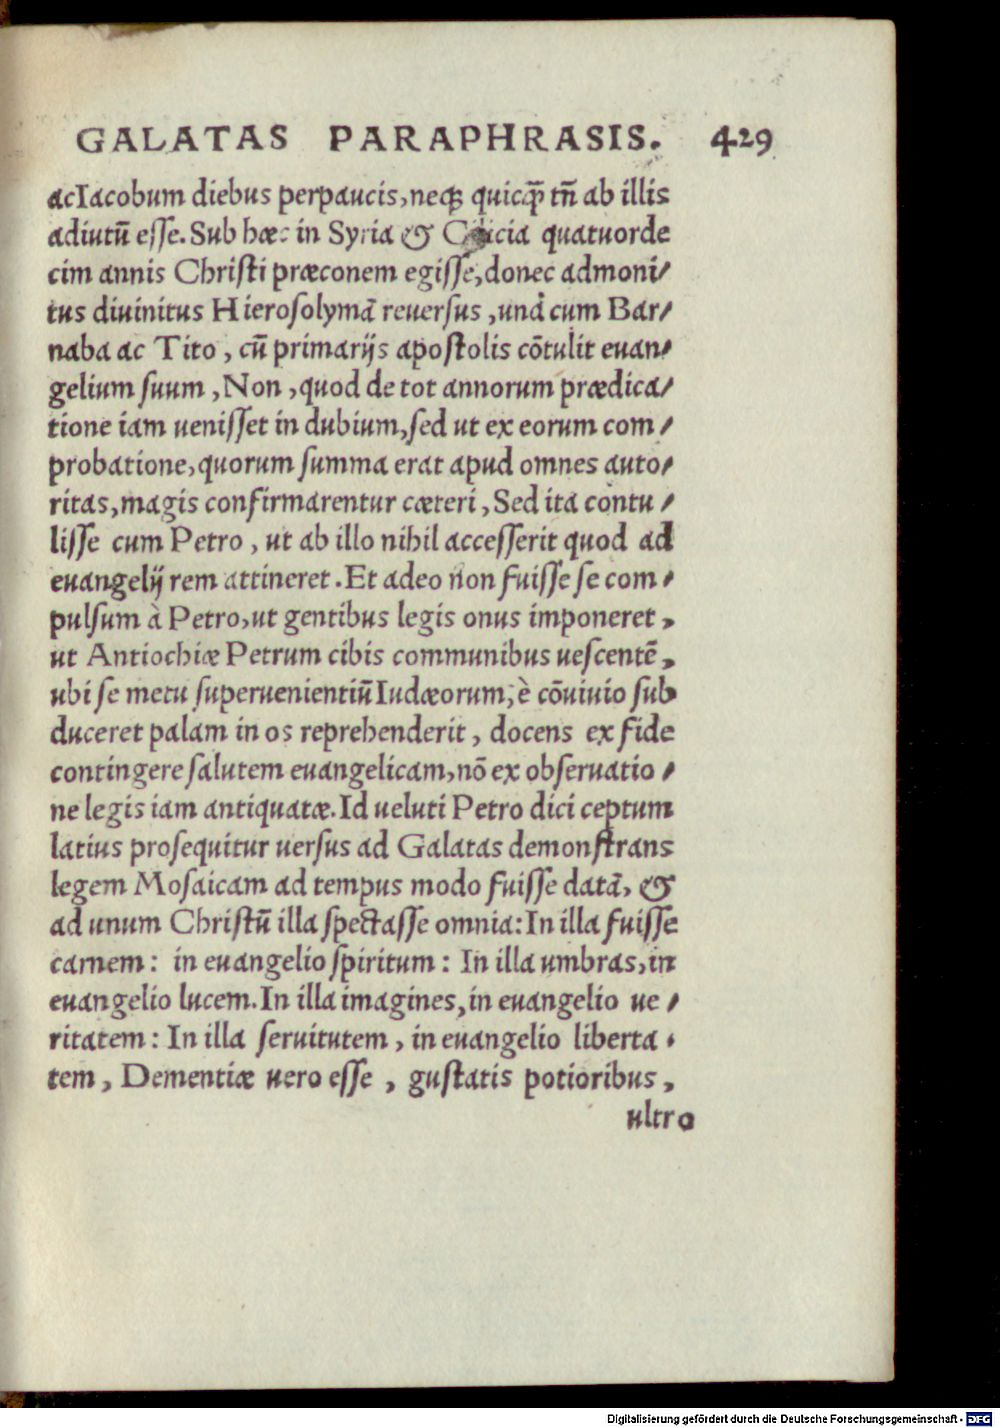 GALATAS PARAPHRASIS. 429
acIacobum diebus perpaucis, neq; quicq̃ tñ ab illis
adiutũ esse. Sub hæc in Syria & Cilicia quatuorde
cim annis Christi præconem egisse, donec admoni/
tus diuinitus Hierosolymã reuersus, unà cum Bar/
naba ac Tito, cũ primarijs apostolis cõtulit euan/
gelium suum, Non, quod de tot annorum prædica/
tione iam uenisset in dubium, sed ut ex eorum com/
probatione, quorum summa erat apud omnes auto/
ritas, magis confirmarentur cæteri, Sed ita contu/
lisse cum Petro, ut ab illo nihil accesserit quod ad
euangelij rem attineret. Et adeo non fuisse se com/
pulsum à Petro, ut gentibus legis onus imponeret,
ut Antiochiæ Petrum cibis communibus uescentẽ,
ubi se metu superuenientiũ Iudæorum, è cõuiuio sub
duceret palam in os reprehenderit, docens ex fide
contingere salutem euangelicam, nõ ex obseruatio/
ne legis iam antiquatæ. Id ueluti Petro dici ceptum
latius prosequitur uersus ad Galatas demonstrans
legem Mosaicam ad tempus modo fuisse datã, &
ad unum Christũ illa spectasse omnia: In illa fuisse
carnem: in euangelio spiritum: In illa umbras, in
euangelio lucem. In illa imagines, in euangelio ue/
ritatem: In illa seruitutem, in euangelio liberta/
tem, Dementiæ uero esse, gustatis potioribus,
ultro
Digitalisierung gefördert durch die Deutsche Forschungsgemeinschaft - DFG